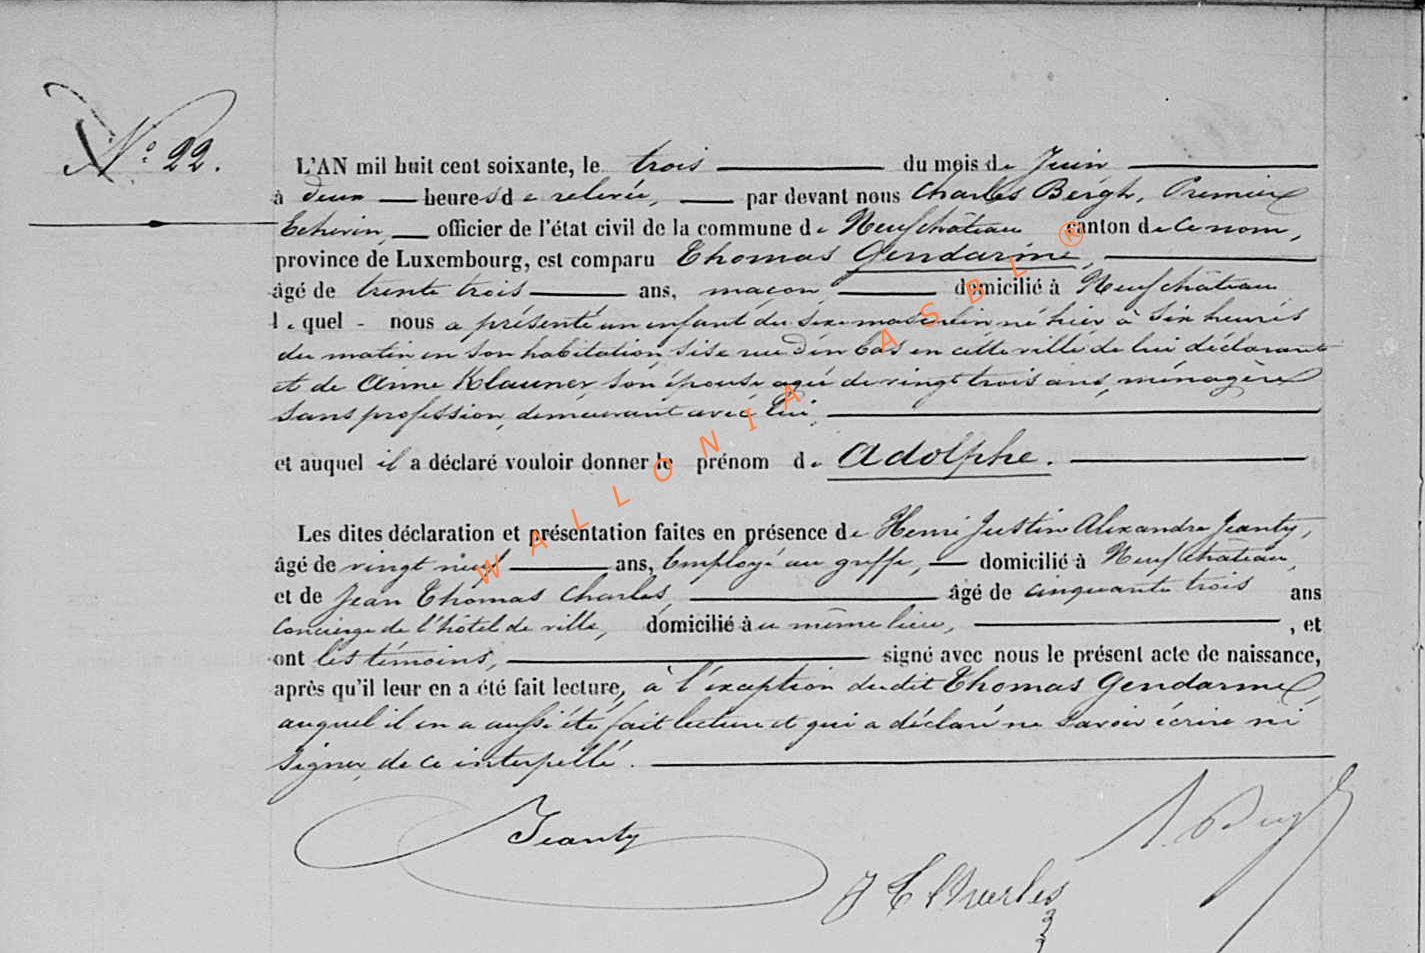 N.° 22.
L'AN mil huit cent soixante, le trois du mois de Juin
à deux heures de relevée, par devant nous Charles Bergh, Premier
Echevin officier de l'état civil de la commune de Neufchâteau canton de ce nom,
province de Luxembourg, est comparu Thomas Gendarme,
âgé de trente trois ans, maçon domicilié à Neufchâteau
lequel nous a présenté un enfant du sexe masculin né hier à six heures
du matin en son habitation sise rue d'en bas en cette ville de lui déclarant
et de Anne Klauner son épouse agée de vingt trois ans, ménagère
sans profession, demeurant avec lui,
et auquel il a déclaré vouloir donner le prénom de Adolphe.
Les dites déclaration et présentation faites en présence de Henri Justin Alexandre Jeanty,
âgé de vingt neuf ans, Employé au greffe, domicilié à Neufchâteau,
et de Jean Thomas Charles, âgé de cinquante trois ans
Concierge de l'hôtel de ville, domicilié au même lieu, , et
ont les témoins, signé avec nous le présent acte de naissance,
après qu'il leur en a été fait lecture, à l'exception dudit Thomas Gendarme
auquel il en a aussi été fait lecture et qui a déclaré ne savoir écrire ni
signer de ce interpellé.
Jeanty
J T Charles
WALLONIA ASBL ®